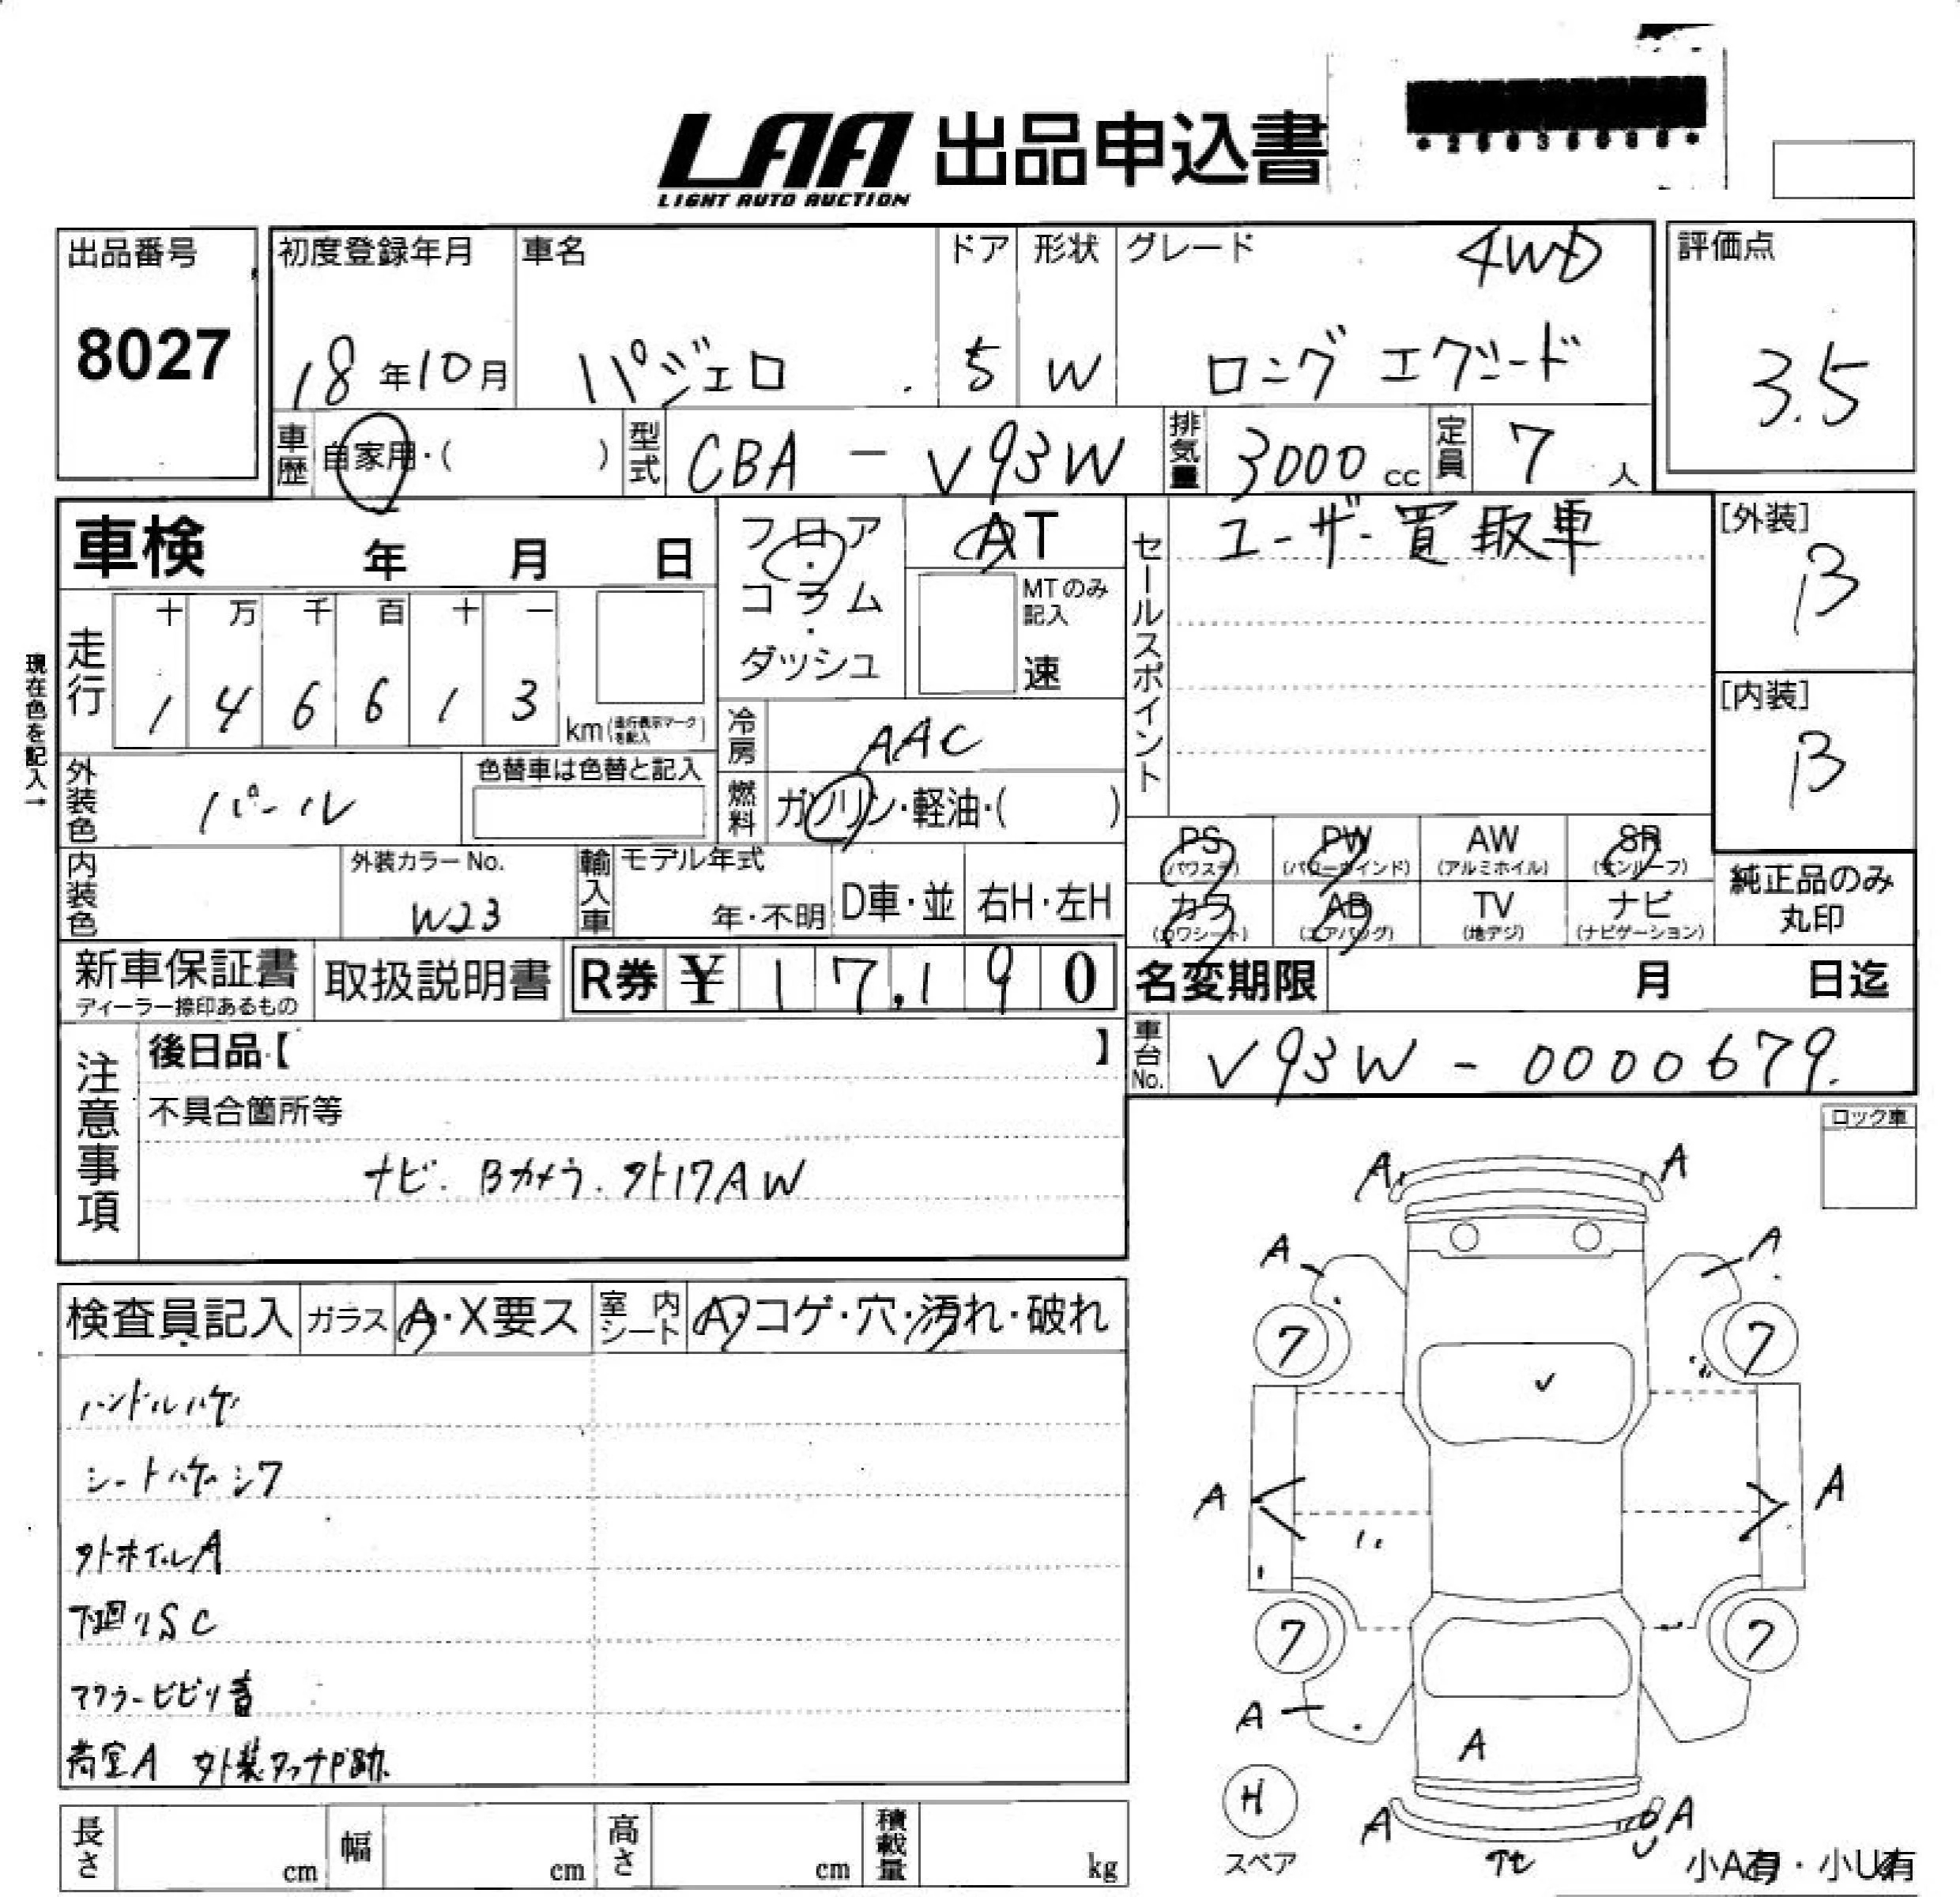 LAA 出品申込書
LIGHT AUTO AUCTION
出品番号
8027
初度登録年月
18年10月
車名
パジェロ
ドア
5
形状
W
グレード
4WD
ロング エクシード
評価点
3.5
車歴
自家用・( )
型式
CBA - V93W
排気量
3000 cc
定員
7 人
車検 年 月 日
フロア・コラム・ダッシュ
AT
MTのみ記入
速
セールスポイント
ユーザー買取車
[外装]
B
[内装]
B
現在色を記入→
走行
十 万 千 百 十 一
1 4 6 6 1 3
km(走行表示マークを記入)
冷房
AAC
燃料
ガソリン・軽油・( )
外装色
パール
色替車は色替と記入
内装色
外装カラーNo.
W23
輸入車
モデル年式
年・不明
D車・並
右H・左H
PS (パワステ)
PW (パワーウインド)
AW (アルミホイル)
SR (サンルーフ)
カワ (カワシート)
AB (エアバッグ)
TV (地デジ)
ナビ (ナビゲーション)
純正品のみ丸印
新車保証書
ディーラー捺印あるもの
取扱説明書
R券 ¥ 17,190
名変期限 月 日迄
車台No.
V93W - 0000679.
注意事項
後日品【 】
不具合箇所等
ナビ. Bカメラ. 外17AW
ロック車
検査員記入
ガラス
A・X要ス
室内シート
A・コゲ・穴・汚れ・破れ
ハンドルハゲ
シートハゲ シワ
外ホイルA
下廻りSC
マフラービビリ音
荷室A 外装タッチP跡
A A
A A
7 7
A A
7 7
A
A
H
スペア
A A
小A有・小U有
長さ cm
幅 cm
高さ cm
積載量 kg